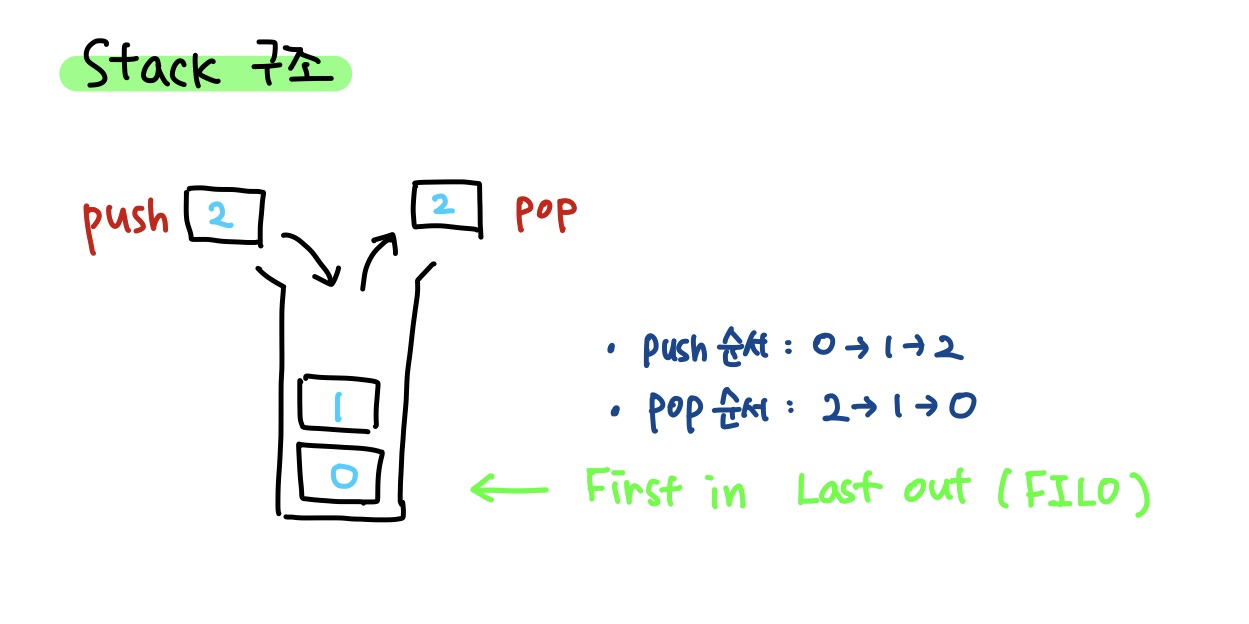 Stack 구조
push 2 2 pop
1
0
• push 순서 : 0 → 1 → 2
• pop 순서 : 2 → 1 → 0
← First in Last out (FILO)